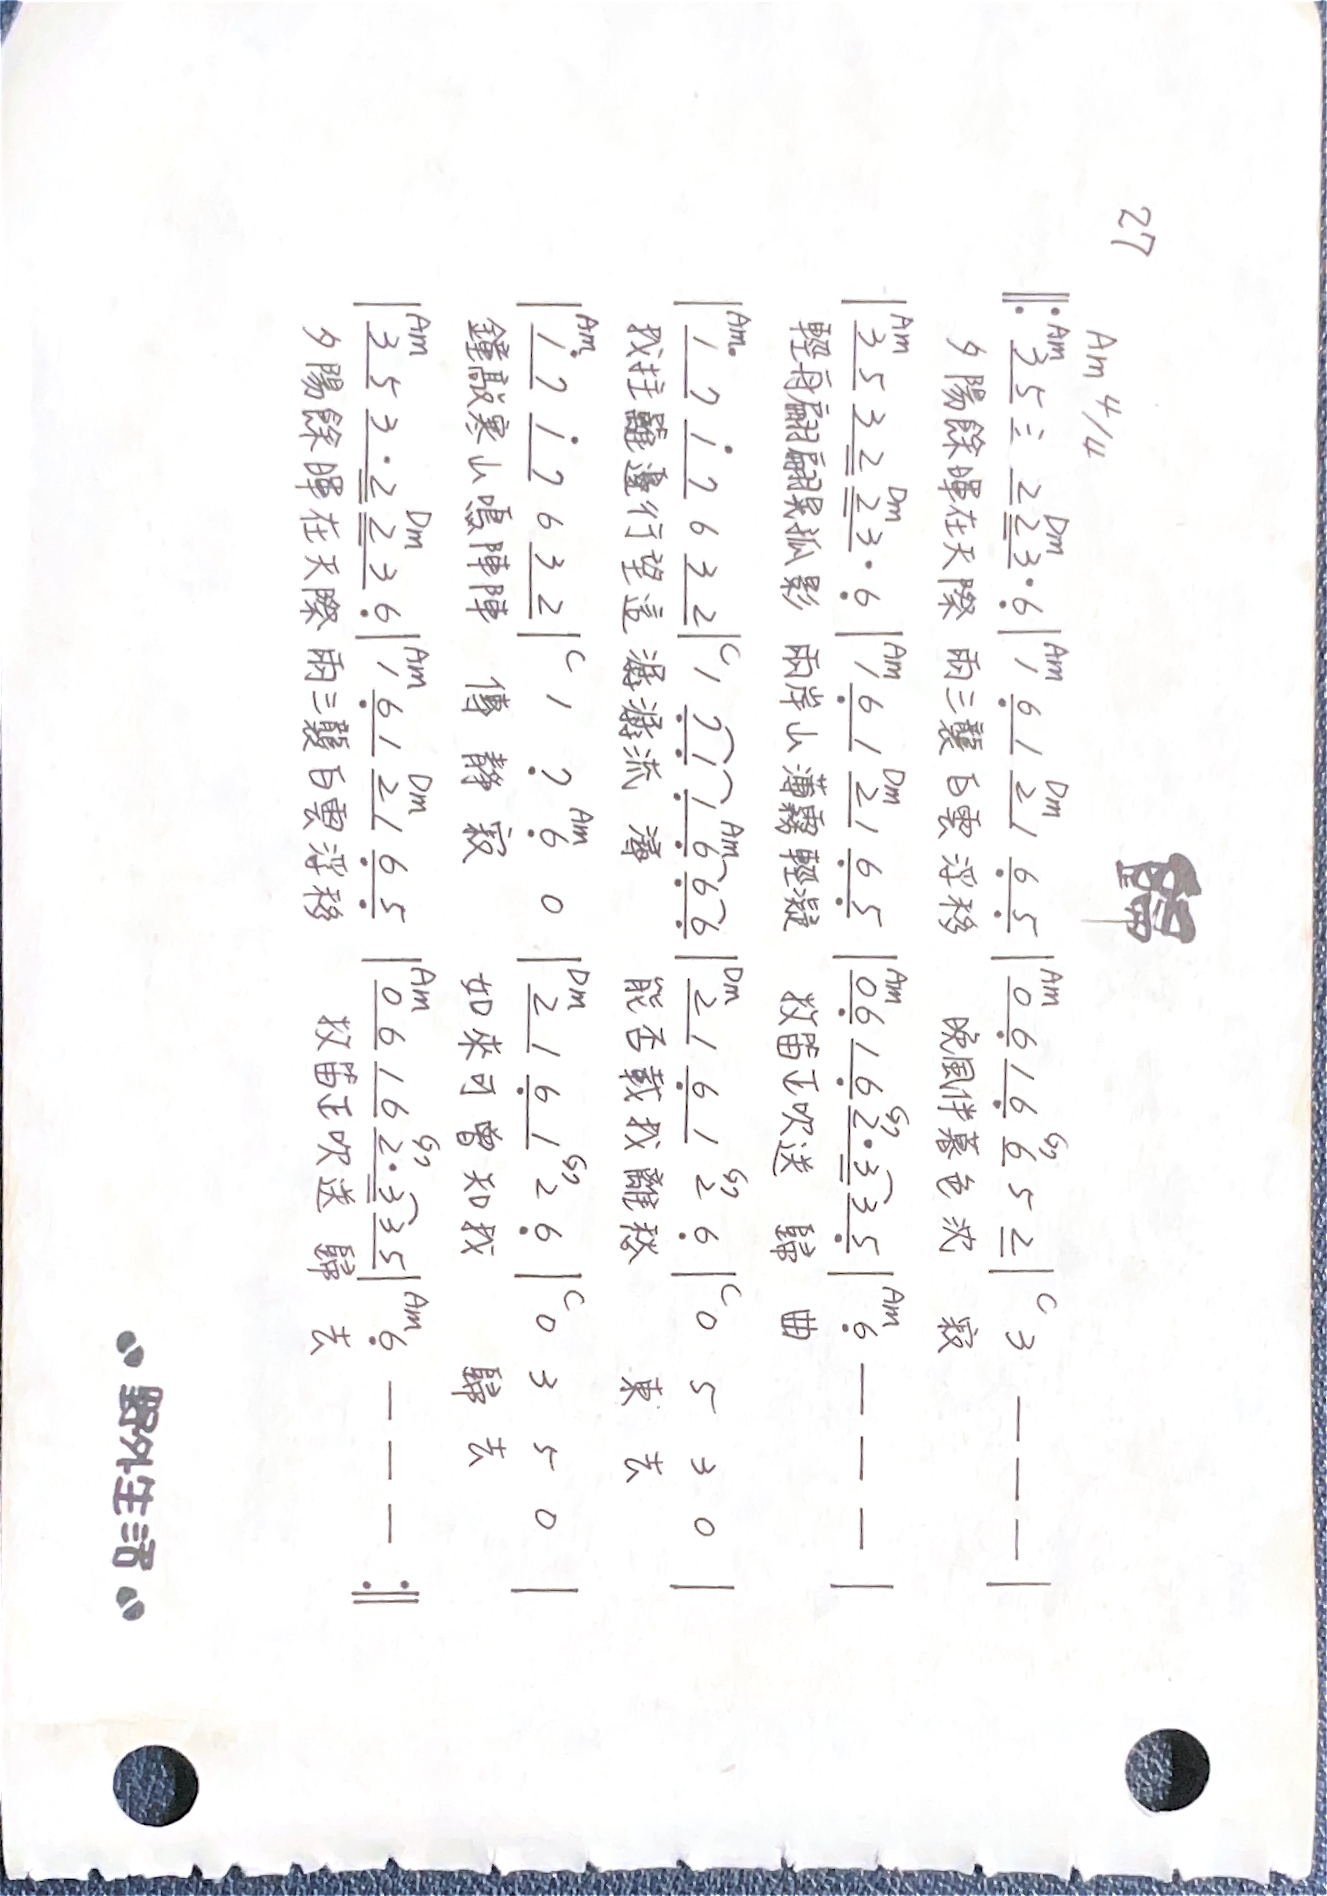 歸
27
Am 4/4
Am Dm Am Dm Am G7 C
‖: 3 5 三 2 2 3 · 6 | 1 6 1 2 1 6 5 | 0 6 1 6 6 5 2 | 3 — — — |
夕陽餘暉在天際 兩三襲白雲浮移 晚風伴暮色沈 寂
Am Dm Am Dm Am G7 Am
| 3 5 3 2 2 3 · 6 | 1 6 1 2 1 6 5 | 0 6 1 6 2 · 3 3 5 | 6 — — — |
輕舟翩翩吴孤影 兩岸山薄霧輕凝 牧笛正吹送 歸 曲
Am C Am Dm G7 C
| 1 7 1 7 6 3 2 | 1 7 1 1 6 6 6 | 2 1 6 1 2 6 | 0 5 3 0 |
我在籬邊行望這 潺潺流 能否載我離愁 東 去
Am C Am Dm G7 C
| 1 7 1 7 6 3 2 | 1 7 6 0 | 2 1 6 1 2 6 | 0 3 5 0 |
鐘敲寒山鳴陣陣 傳 靜 寂 如來可曾知我 歸 去
Am Dm Am Dm Am G7 Am
| 3 5 3 · 2 2 3 6 | 1 6 1 2 1 6 5 | 0 6 1 6 2 · 3 3 5 | 6 — — — :‖
夕陽餘暉在天際 兩三襲白雲浮移 牧笛正吹送 歸 去
野外生活